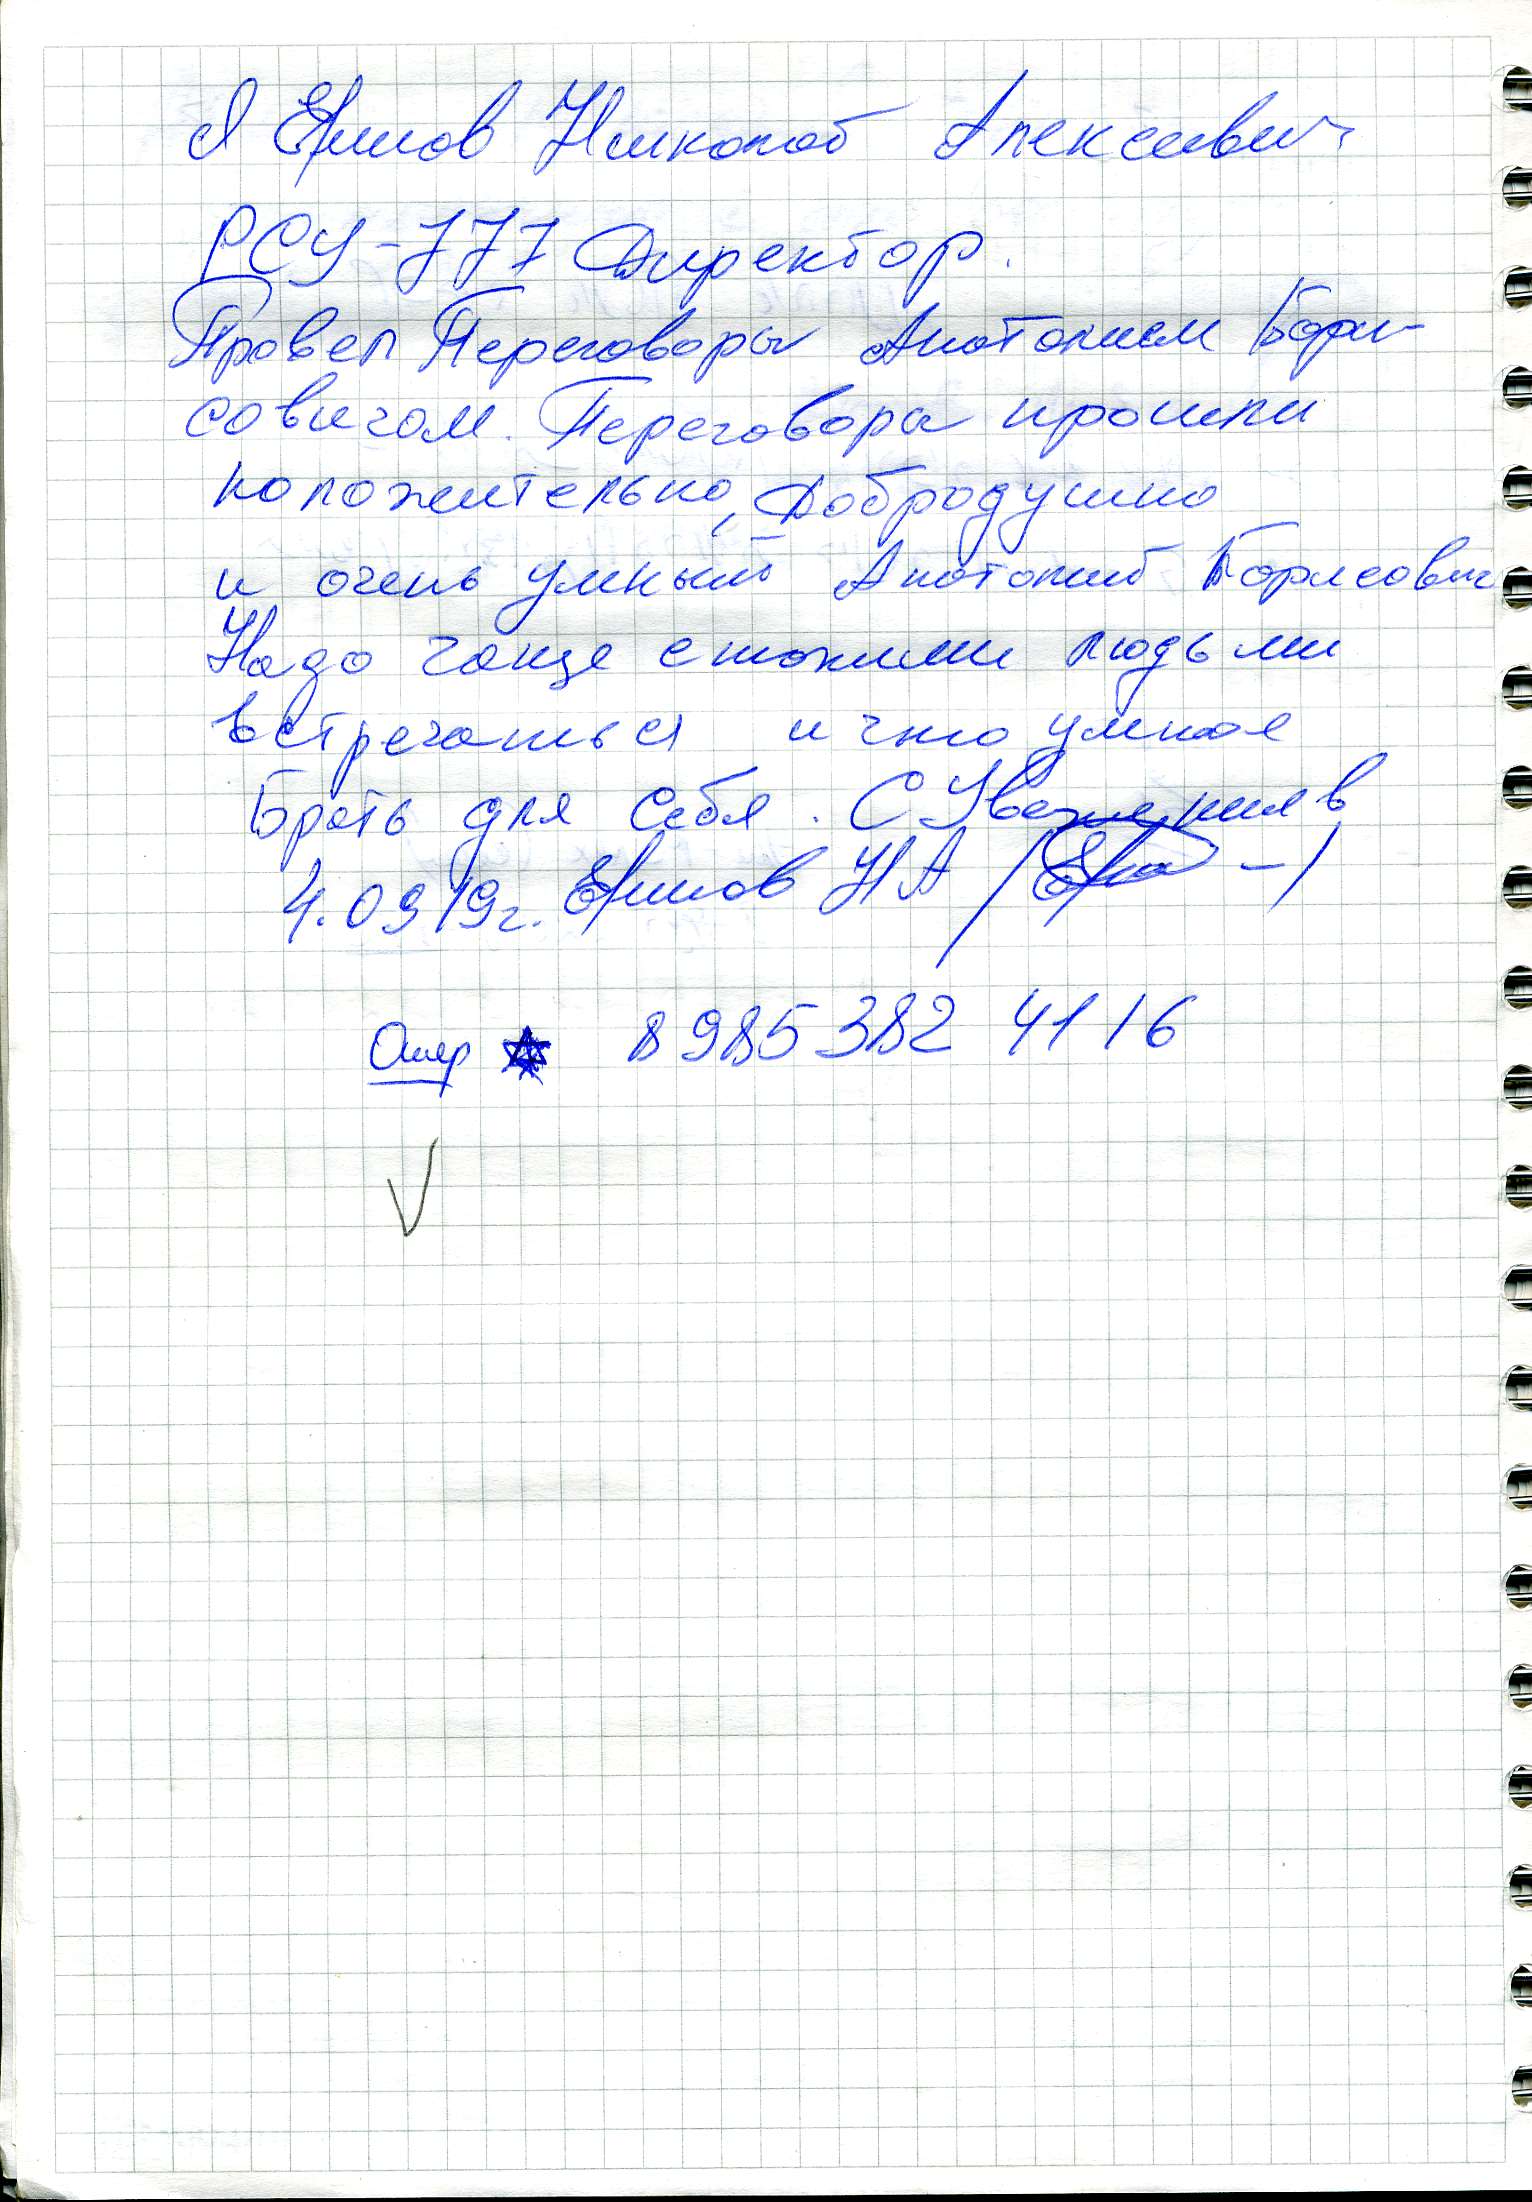 Я Ермов Николай Алексеевич
РСУ-777 Директор.
Провел Переговоры Анатолием Бори-
совичом. Переговоры прошли
положительно, Добродушно
и очень умный Анатолий Борисович
Надо чаще с такими людьми
встречаться и что умное
Брать для себя. С Уважением
4.09 19г. Ермов НА
8985 382 4116